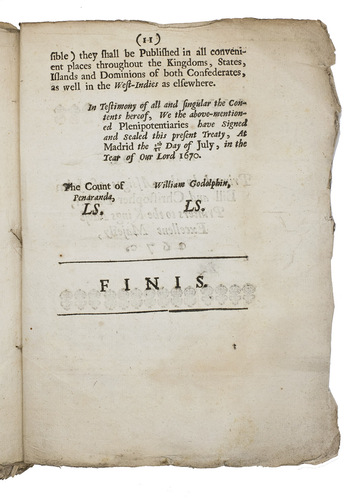 (11)
sible) they shall be Published in all conveni-
ent places throughout the Kingdoms, States,
Islands and Dominions of both Confederates,
as well in the West-Indies as elsewhere.
In Testimony of all and singular the Con-
tents hereof, We the above-mention-
ed Plenipotentiaries have Signed
and Sealed this present Treaty, At
Madrid the Day of July, in the
Year of Our Lord 1670.
The Count of William Godolphin,
Penaranda,
LS. LS.
FINIS.